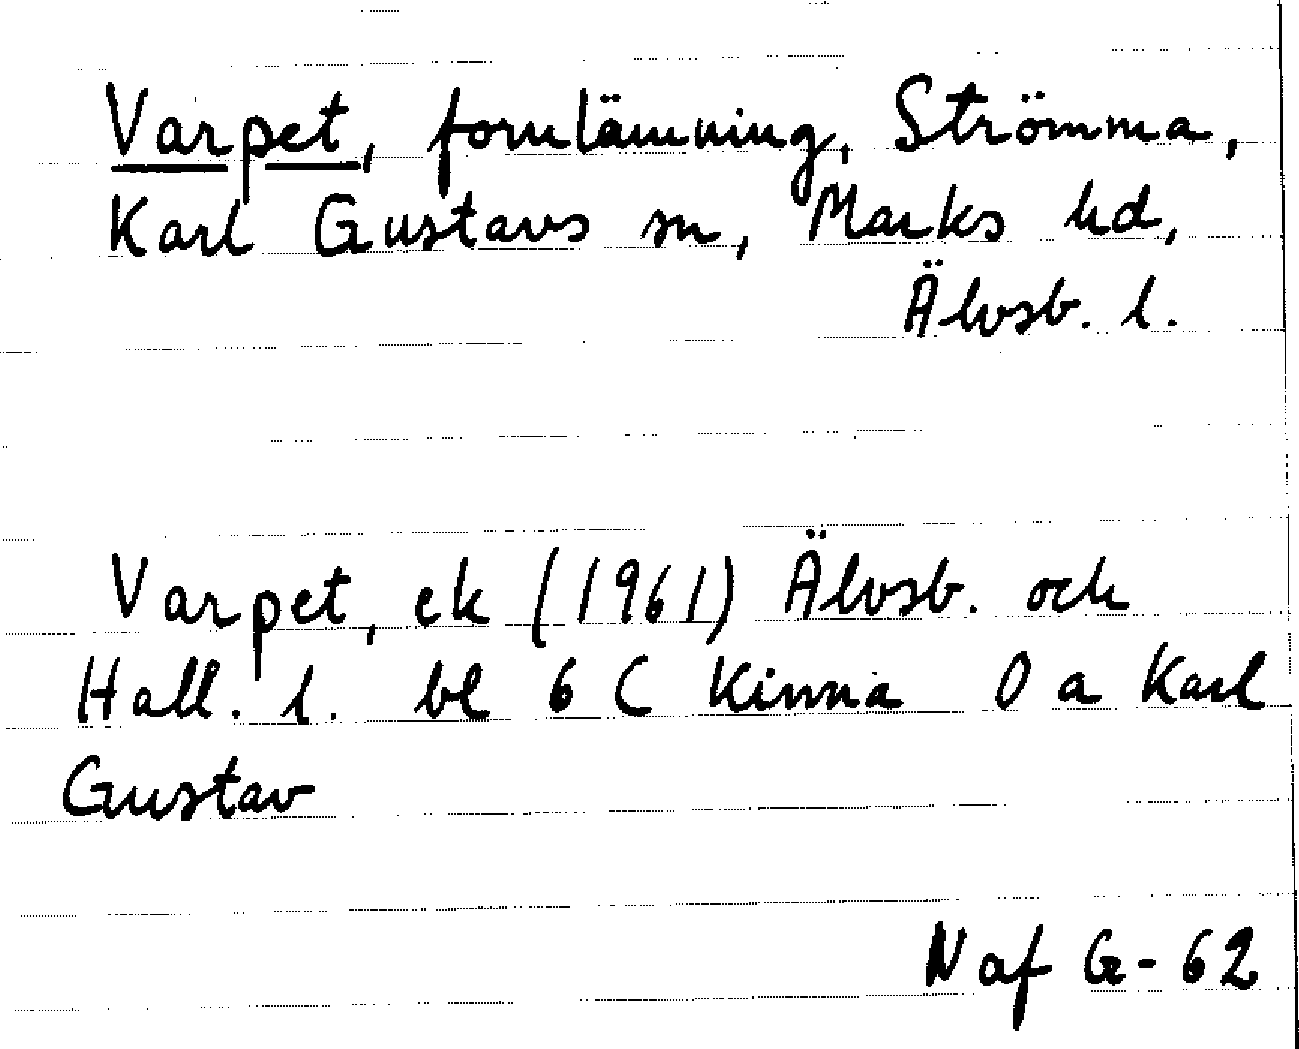 Varpet, fornlämning, Strömma,
Karl Gustavs sn, Marks hd,
Älvsb. l.
Varpet, ek (1961) Älvsb. och
Hall. l. bl 6 C Kinna 0 a Karl
Gustav
N af G-62